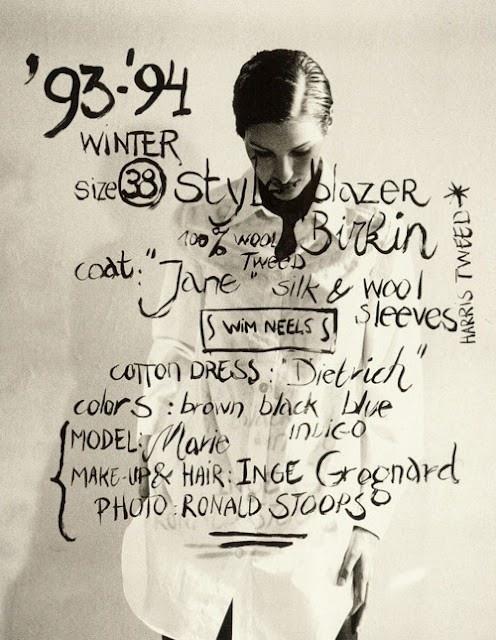 '93-'94
WINTER
size 38 style blazer
100% wool "Birkin
TWEED
coat: "Jane" silk & wool
sleeves
HARRIS TWEED *
WIM NEELS
COTTON DRESS: "Dietrich"
colors: brown black blue
INDIGO
MODEL: Marie
MAKE-UP & HAIR: INGE Grognard
PHOTO: RONALD STOOPS